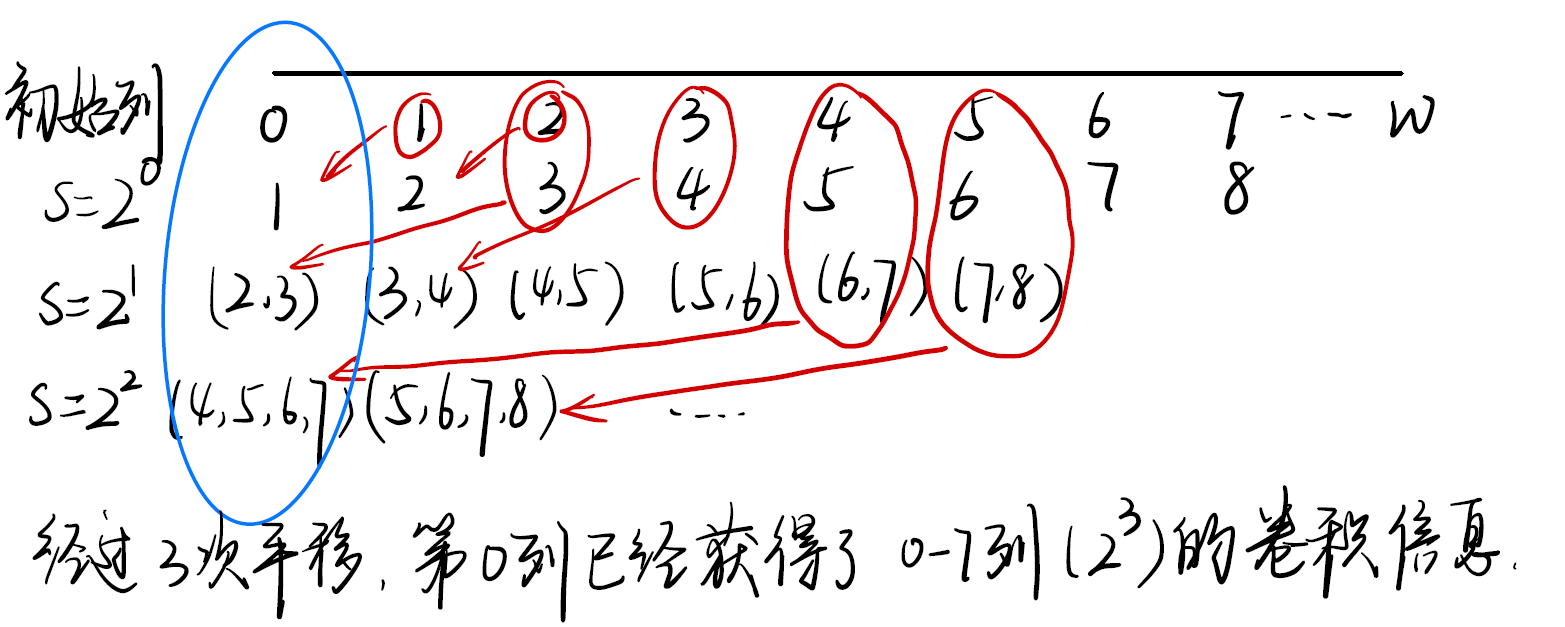 初始列 0 1 2 3 4 5 6 7 ···· W
S=2^0 1 2 3 4 5 6 7 8
S=2^1 (2,3) (3,4) (4,5) (5,6) (6,7) (7,8)
S=2^2 (4,5,6,7) (5,6,7,8) ····
经过3次平移,第0列已经获得了 0-7列(2^3)的卷积信息.